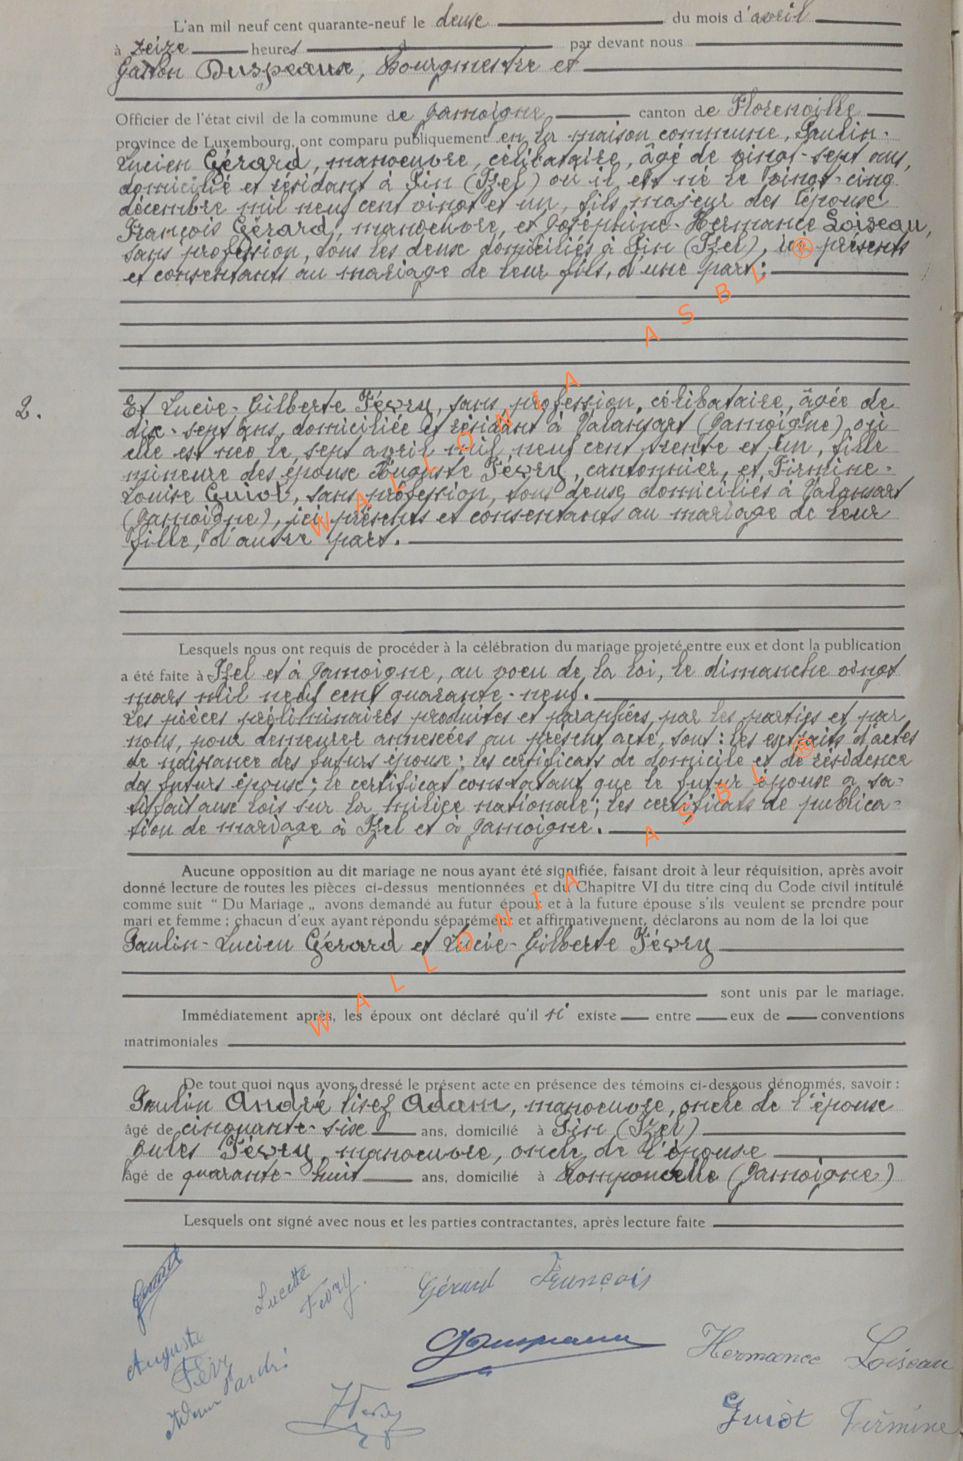 L'an mil neuf cent quarante-neuf le deux du mois d'avril
à seize heures par devant nous
Gaston Duspeaux, Bourgmestre et
Officier de l'état civil de la commune de Jamoigne canton de Florenville
province de Luxembourg, ont comparu publiquement en la maison commune, Paulin-
Lucien Gérard, manoeuvre, célibataire, âgé de vingt-sept ans,
domicilié et résidant à Pin (Izel) où il est né le vingt-cinq
décembre mil neuf cent vingt et un, fils majeur des époux
François Gérard, manoeuvre, et Joséphine-Hermance Loiseau,
sans profession, tous les deux domiciliés à Pin (Izel), ici présents
et consentants au mariage de leur fils, d'une part;
2.
Et Lucie-Gilberte Févry, sans profession, célibataire, âgée de
dix-sept ans, domiciliée et résidant à Valansart (Jamoigne) où
elle est née le sept avril mil neuf cent trente et un, fille
mineure des époux Auguste Févry, cantonnier, et Firmine-
Louise Guiot, sans profession, tous deux domiciliés à Valansart
(Jamoigne), ici présents et consentants au mariage de leur
fille, d'autre part.
Lesquels nous ont requis de procéder à la célébration du mariage projeté entre eux et dont la publication
a été faite à Izel et à Jamoigne, au voeu de la loi, le dimanche vingt
mars mil neuf cent quarante-neuf.
Les pièces préliminaires produites et paraphées par les parties et par
nous, pour demeurer annexées au présent acte, sont: les extraits d'actes
de naissance des futurs époux; les certificats de domicile et de résidence
des futurs époux; le certificat constatant que le futur époux a sa-
tisfait aux lois sur la milice nationale; les certificats de publica-
tion de mariage à Izel et à Jamoigne.
Aucune opposition au dit mariage ne nous ayant été signifiée, faisant droit à leur réquisition, après avoir
donné lecture de toutes les pièces ci-dessus mentionnées et du Chapitre VI du titre cinq du Code civil intitulé
comme suit “ Du Mariage „ avons demandé au futur époux et à la future épouse s'ils veulent se prendre pour
mari et femme ; chacun d'eux ayant répondu séparément et affirmativement, déclarons au nom de la loi que
Paulin-Lucien Gérard et Lucie-Gilberte Févry
sont unis par le mariage.
Immédiatement après, les époux ont déclaré qu'il n' existe entre eux de conventions
matrimoniales
De tout quoi nous avons dressé le présent acte en présence des témoins ci-dessous dénommés, savoir :
Paulin André lisez Adam, manoeuvre, oncle de l'époux
âgé de cinquante-six ans, domicilié à Pin (Izel)
Jules Févry, manoeuvre, oncle de l'épouse
âgé de quarante-huit ans, domicilié à Romponcelle (Jamoigne)
Lesquels ont signé avec nous et les parties contractantes, après lecture faite
Lucette Févry.
Gérard François
Auguste Févry
Hermance Loiseau
Guiot Firmine
WALLONIA ASBL ®
WALLONIA ASBL ®